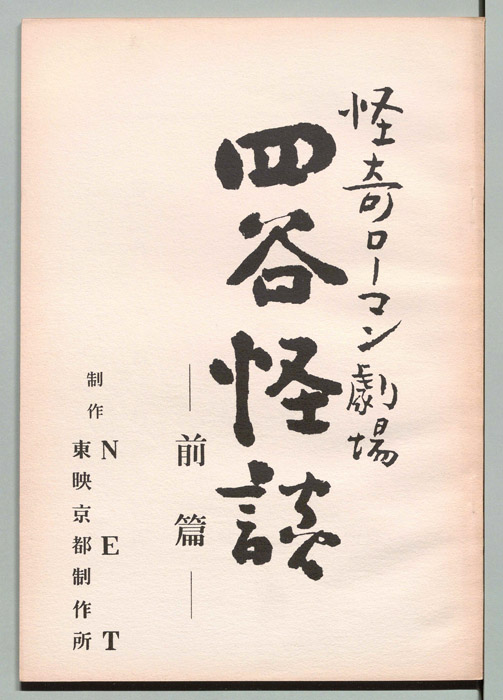 怪奇ローマン劇場
四谷怪談
―前篇―
制作
NET
東映京都制作所